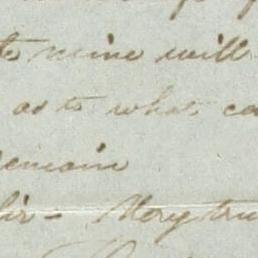 to mine will
as to what ca
remain
Sir - Very tru